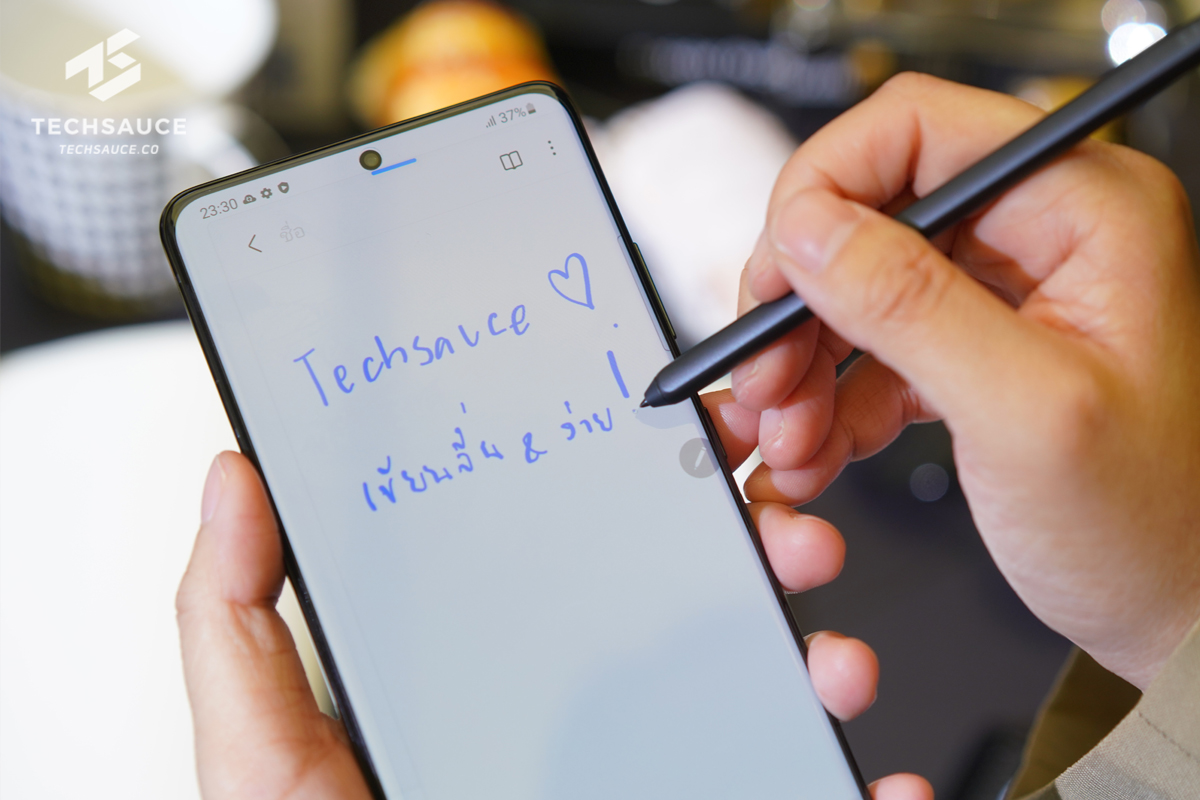 TECHSAUCE
TECHSAUCE.CO
23:30
37%
ชื่อ
Techsauce ♡
เขียนลื่น & ง่าย !